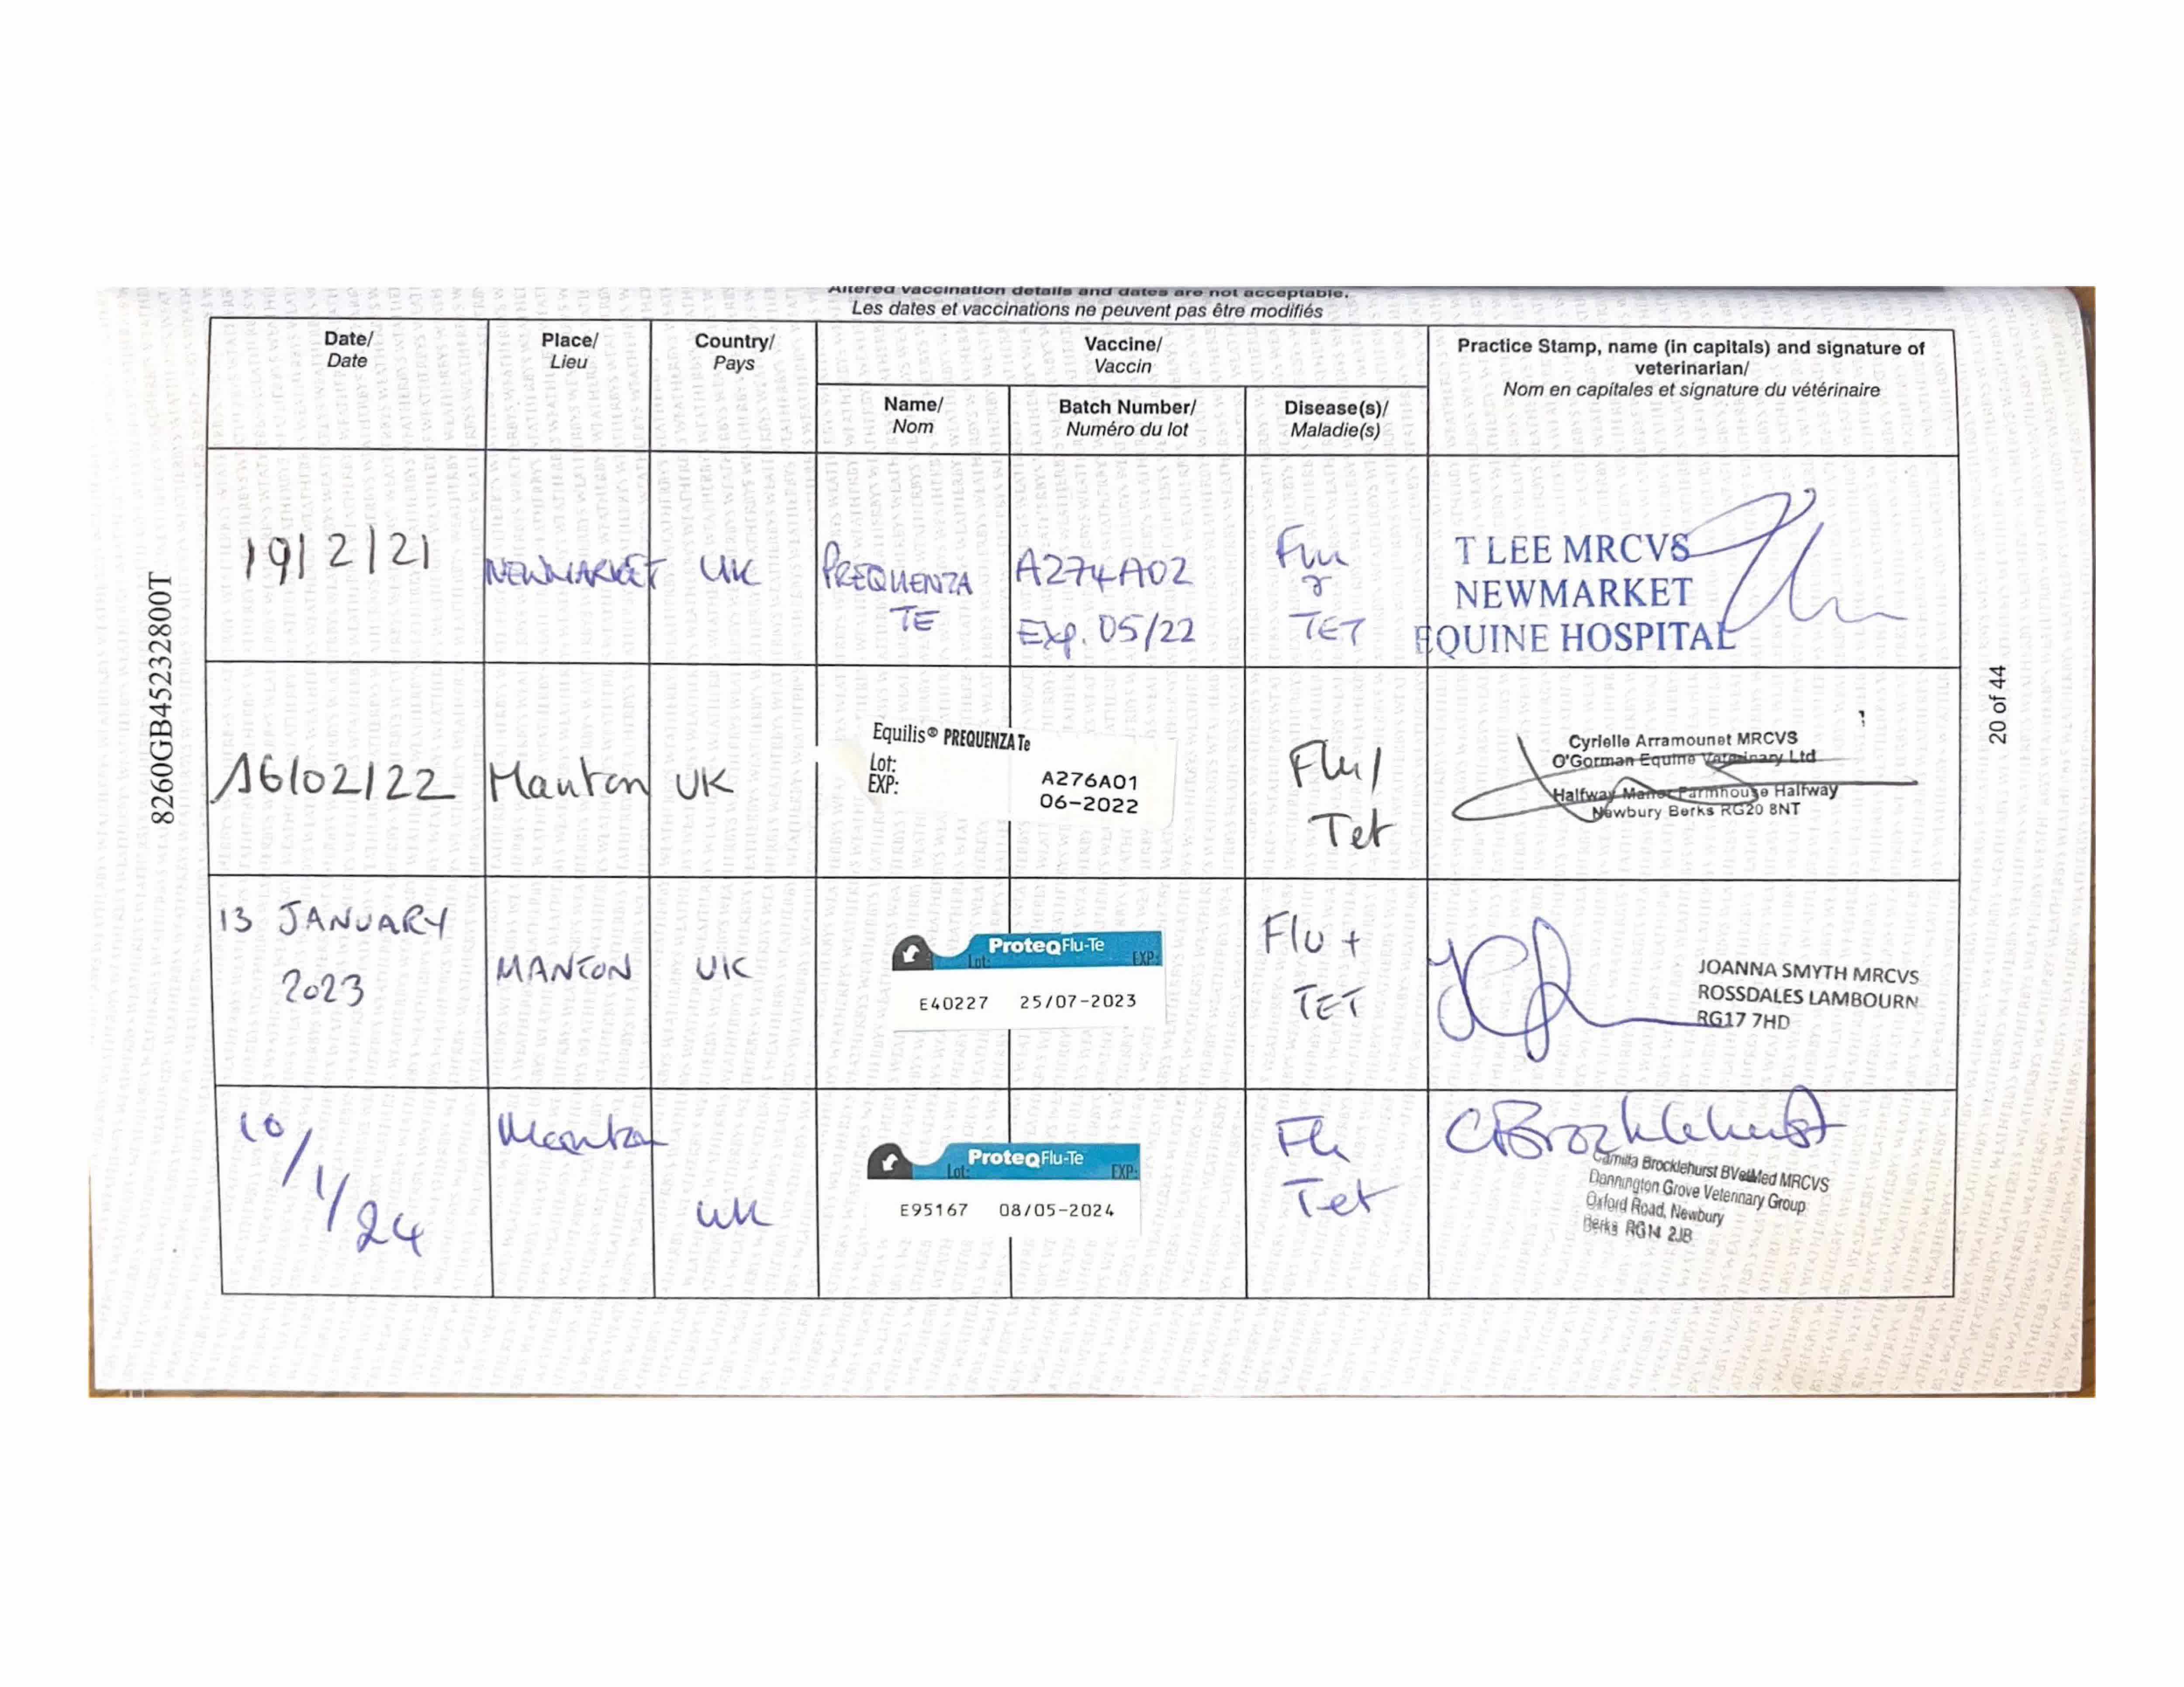 Altered vaccination details and dates are not acceptable.
Les dates et vaccinations ne peuvent pas être modifiés
Date/
Date
Place/
Lieu
Country/
Pays
Vaccine/
Vaccin
Practice Stamp, name (in capitals) and signature of
veterinarian/
Nom en capitales et signature du vétérinaire
Name/
Nom
Batch Number/
Numéro du lot
Disease(s)/
Maladie(s)
19/2/21
NEWMARKET
UK
PREQUENZA
TE
A274A02
Exp. 05/22
Flu
&
TET
T LEE MRCVS
NEWMARKET
EQUINE HOSPITAL
16/02/22
Manton
UK
Equilis® PREQUENZA Te
Lot:
EXP:
A276A01
06-2022
Flu/
Tet
Cyrielle Arramounet MRCVS
O'Gorman Equine Veterinary Ltd
Halfway Manor Farmhouse Halfway
Newbury Berks RG20 8NT
13 JANUARY
2023
MANTON
UK
ProteqFlu-Te
Lot: EXP:
E40227 25/07-2023
Flu +
TET
JOANNA SMYTH MRCVS
ROSSDALES LAMBOURN
RG17 7HD
10/1/24
Manton
UK
ProteqFlu-Te
Lot: EXP:
E95167 08/05-2024
Flu
Tet
CBrocklehurst
Camilla Brocklehurst BVetMed MRCVS
Donnington Grove Veterinary Group
Oxford Road, Newbury
Berks RG14 2JB
8260GB45232800T
20 of 44